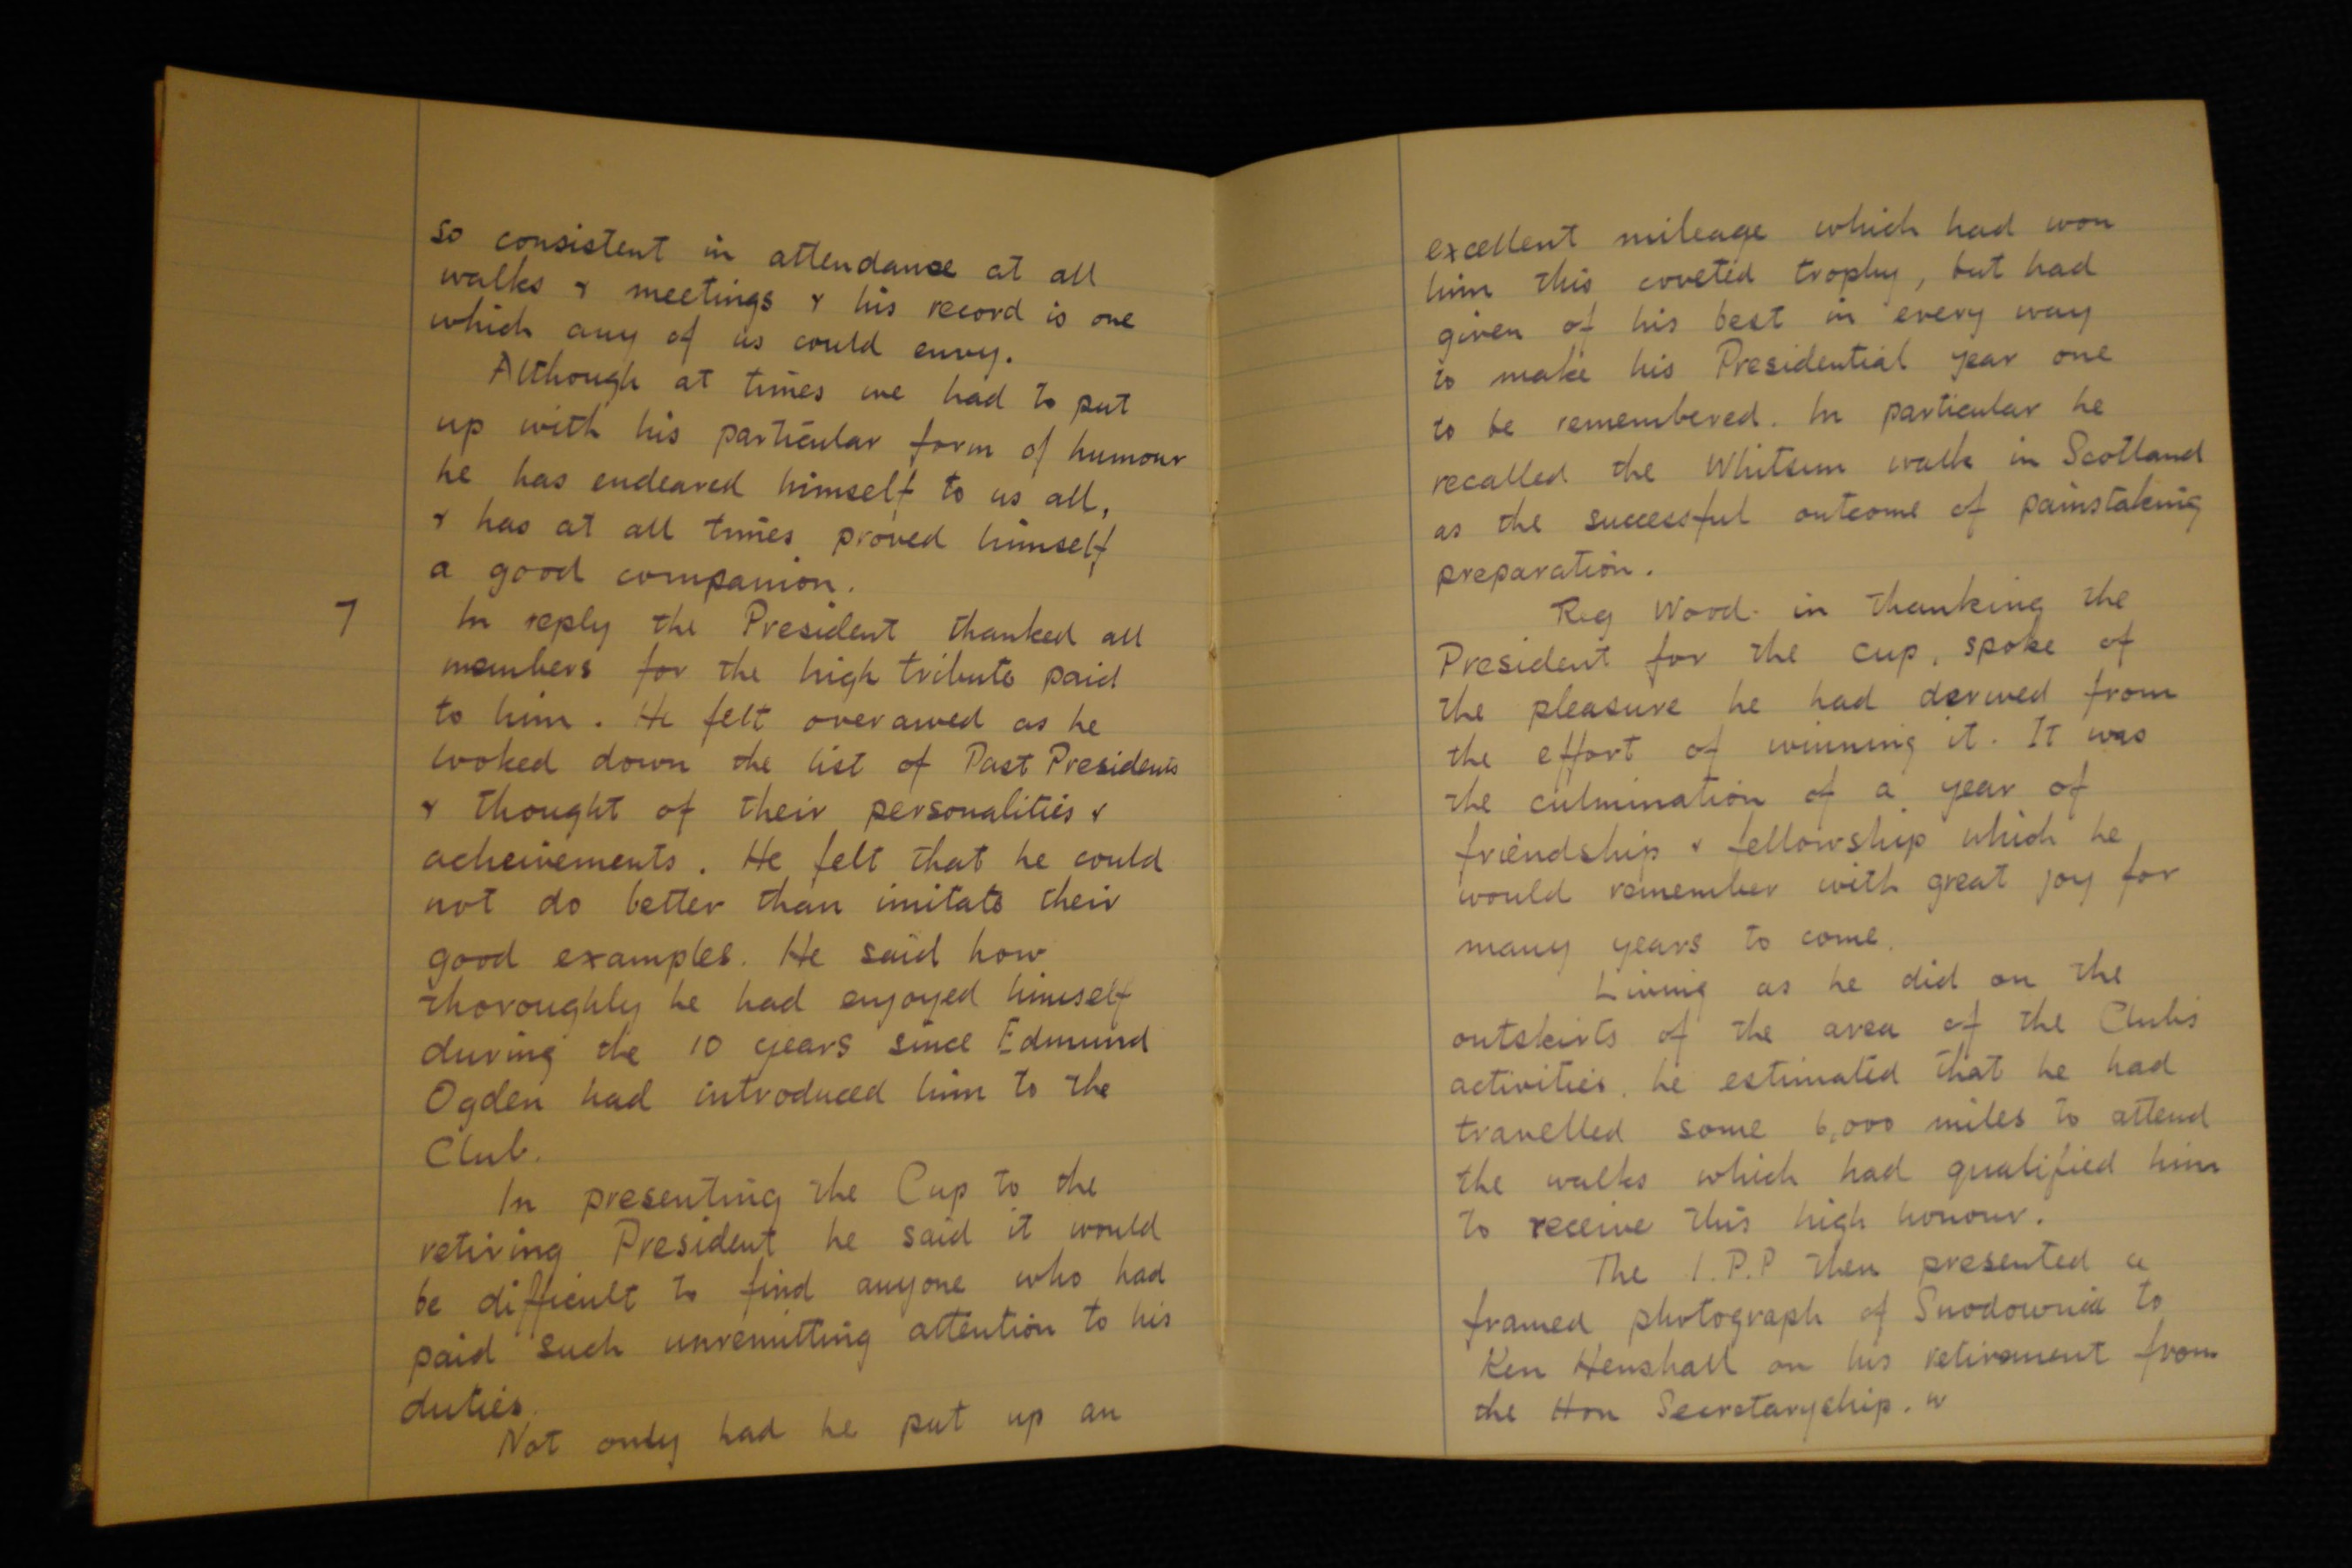 so consistent in attendance at all
walks & meetings & his record is one
which any of us could envy.
Although at times we had to put
up with his particular form of humour
he has endeared himself to us all,
& has at all times proved himself
a good companion.
7
In reply the President thanked all
members for the high tribute paid
to him. He felt overawed as he
looked down the list of Past Presidents
& thought of their personalities &
acheivements. He felt that he could
not do better than imitate their
good examples. He said how
thoroughly he had enjoyed himself
during the 10 years since Edmund
Ogden had introduced him to the
Club.
In presenting the Cup to the
retiring President he said it would
be difficult to find anyone who had
paid such unremitting attention to his
duties.
Not only had he put up an
excellent mileage which had won
him this coveted trophy, but had
given of his best in every way
to make his Presidential year one
to be remembered. In particular he
recalled the Whitsun walk in Scotland
as the successful outcome of painstaking
preparation.
Reg Wood. in thanking the
President for the cup, spoke of
the pleasure he had derived from
the effort of winning it. It was
the culmination of a year of
friendship & fellowship which he
would remember with great joy for
many years to come.
Living as he did on the
outskirts of the area of the Club's
activities, he estimated that he had
travelled some 6,000 miles to attend
the walks which had qualified him
to receive this high honour.
The I.P.P then presented a
framed photograph of Snodownia to
Ken Henshall on his retirement from
the Hon Secretaryship.